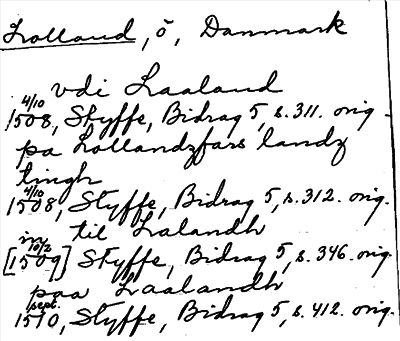 Lolland, ö, Danmark
vdi Laaland
4/10
1508, Styffe, Bidrag 5, s. 311. orig.
pa Lollandzfars landz
tingh
4/10
1508, Styffe, Bidrag 5, s. 312. orig.
in til Lalandh
10/2
[1509] Styffe, Bidrag 5, s. 346. orig.
paa Laalandh
sept.
1510, Styffe, Bidrag 5, s. 412. orig.